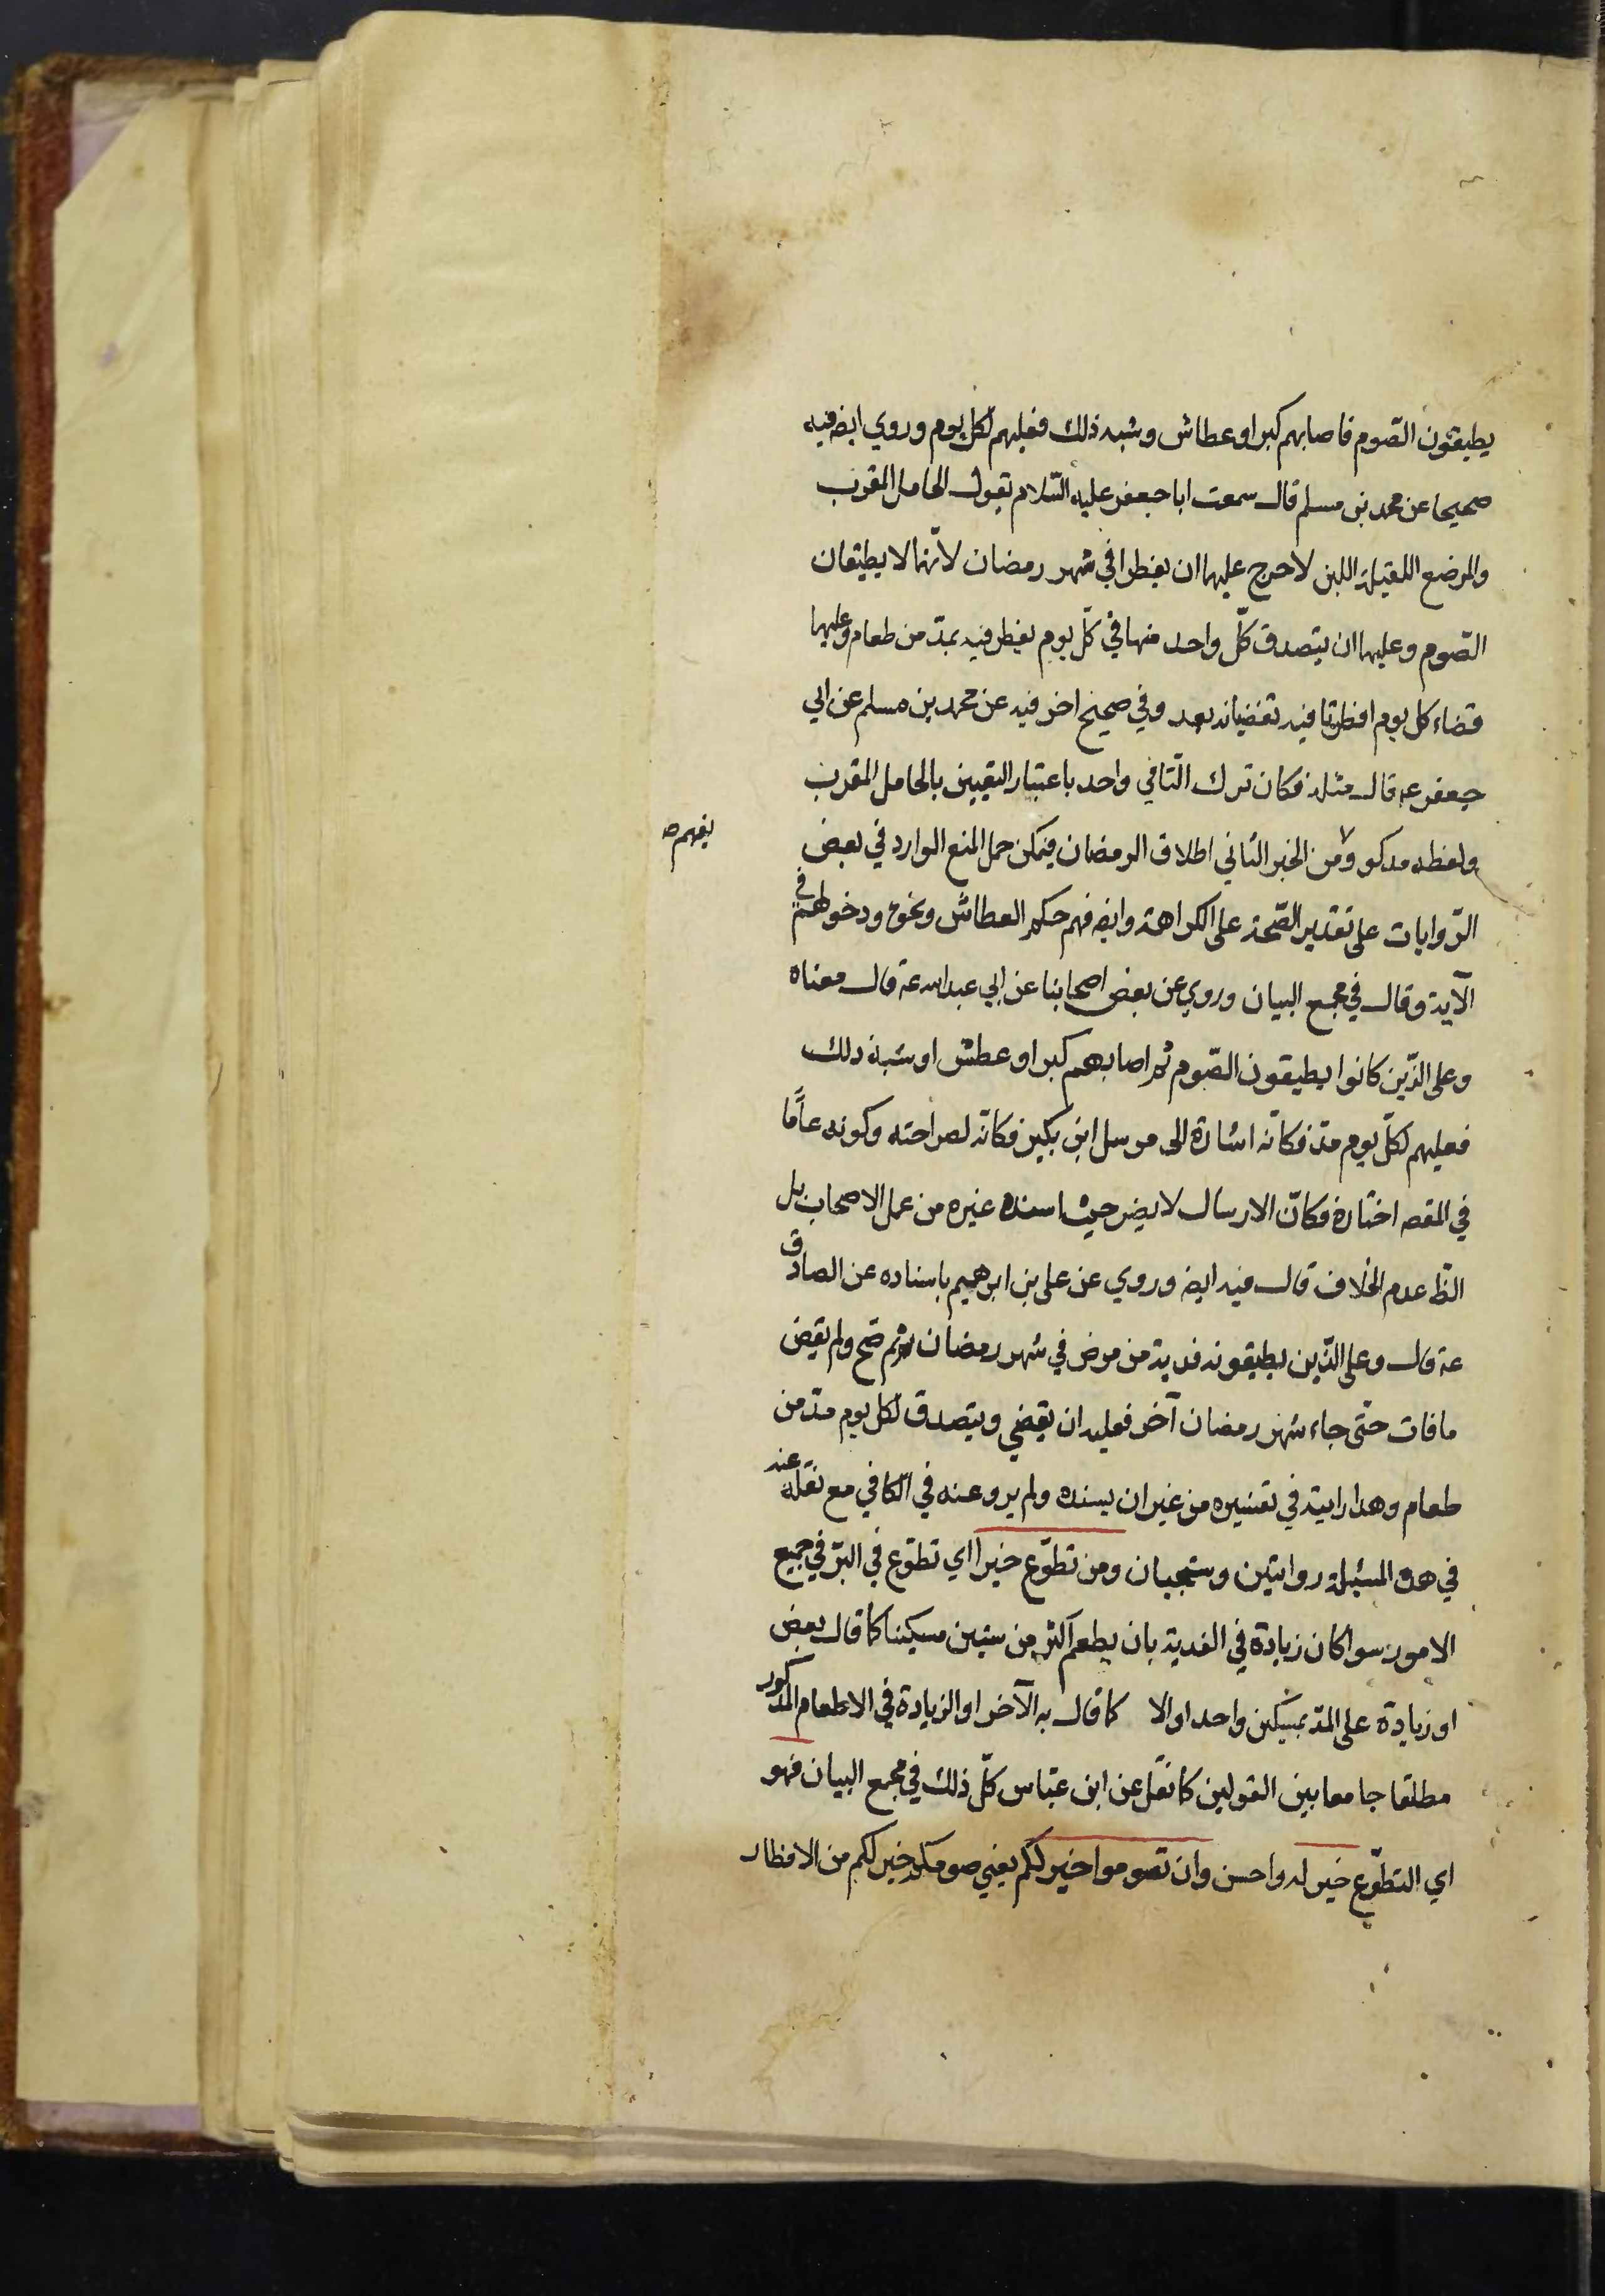 يطيقون الصّوم فاصابهم كبر او عطاش وشبه ذلك فعليهم لكلّ يوم وروي ايضا فيه
صحيحا عن محمد بن مسلم قال سمعت ابا جعفر عليه السّلام يقول الحامل المقرب
والمرضع القليلة اللبن لا حرج عليهما ان يفطرا في شهر رمضان لانّهما لا يطيقان
الصّوم وعليهما ان يتصدق كلّ واحد منهما في كلّ يوم يفطر فيه بمدّ من طعام وعليهما
قضاء كل يوم افطرتا فيه تقضيانه بعد وفي صحيح اخر فيه عن محمد بن مسلم عن ابي
جعفر عـ قال مثله فكان ترك التا في واحد باعتبار التعيين بالحامل المقرب
ولفظه مذكور ولا من الخبر الثاني اطلاق الرمضان فيمكن حمل المنع الوارد في بعض
يفهم صـ
الرّوايات على تقدير الصّحة على الكراهة وايضـ فهم حكم العطاش ونحوه ودخولهم في
الآية وقال في مجمع البيان وروي عن بعض اصحابنا عن ابي عبد الله عـ قال معناه
وعلى الذّين كانوا يطيقون الصّوم ثم اصابهم كبر او عطش او شبه ذلك
فعليهم لكلّ يوم مدّ فكانّه اشارة الى مرسل ابن بكير فكانّه لصراحته وكونه عامّا
في المقصـ اختاره فكانّ الارسال لا يضر حيث اسنده غيره من عمل الاصحاب بل
الظـ عدم الخلاف قال فيه ايضـ وروي عن علي بن ابرهيم باسناده عن الصادق
عـ قال وعلى الذّين يطيقونه فدية من مرض في شهر رمضان ثم صحّ ولم يقض
ما فات حتّى جاء شهر رمضان آخر فعليه ان يقضي ويتصدق لكل يوم مدّ من
طعام وهذا رايته في تفسيره من غير ان يسنده ولم يرو عنه في الكافي مع نقله عنه
في هذه المسئلة روايتين وستجيان ومن تطوّع خيرا اي تطوّع في البرّ في جميع
الامور سوا كان زيادة في الفدية بان يطعم اكثر من ستين مسكينا كما قال بعض
او زيادة على المدّ بمسكين واحد او لا كما قال به الآخر او الزيادة في الاطعام المذكور
مطلقا جامعا بين القولين كما نقل عن ابن عبّاس كلّ ذلك في مجمع البيان فهو
اي التطوّع خير له واحسن وان تصوموا خير لكم يعني صومكم خير لكم من الافطار